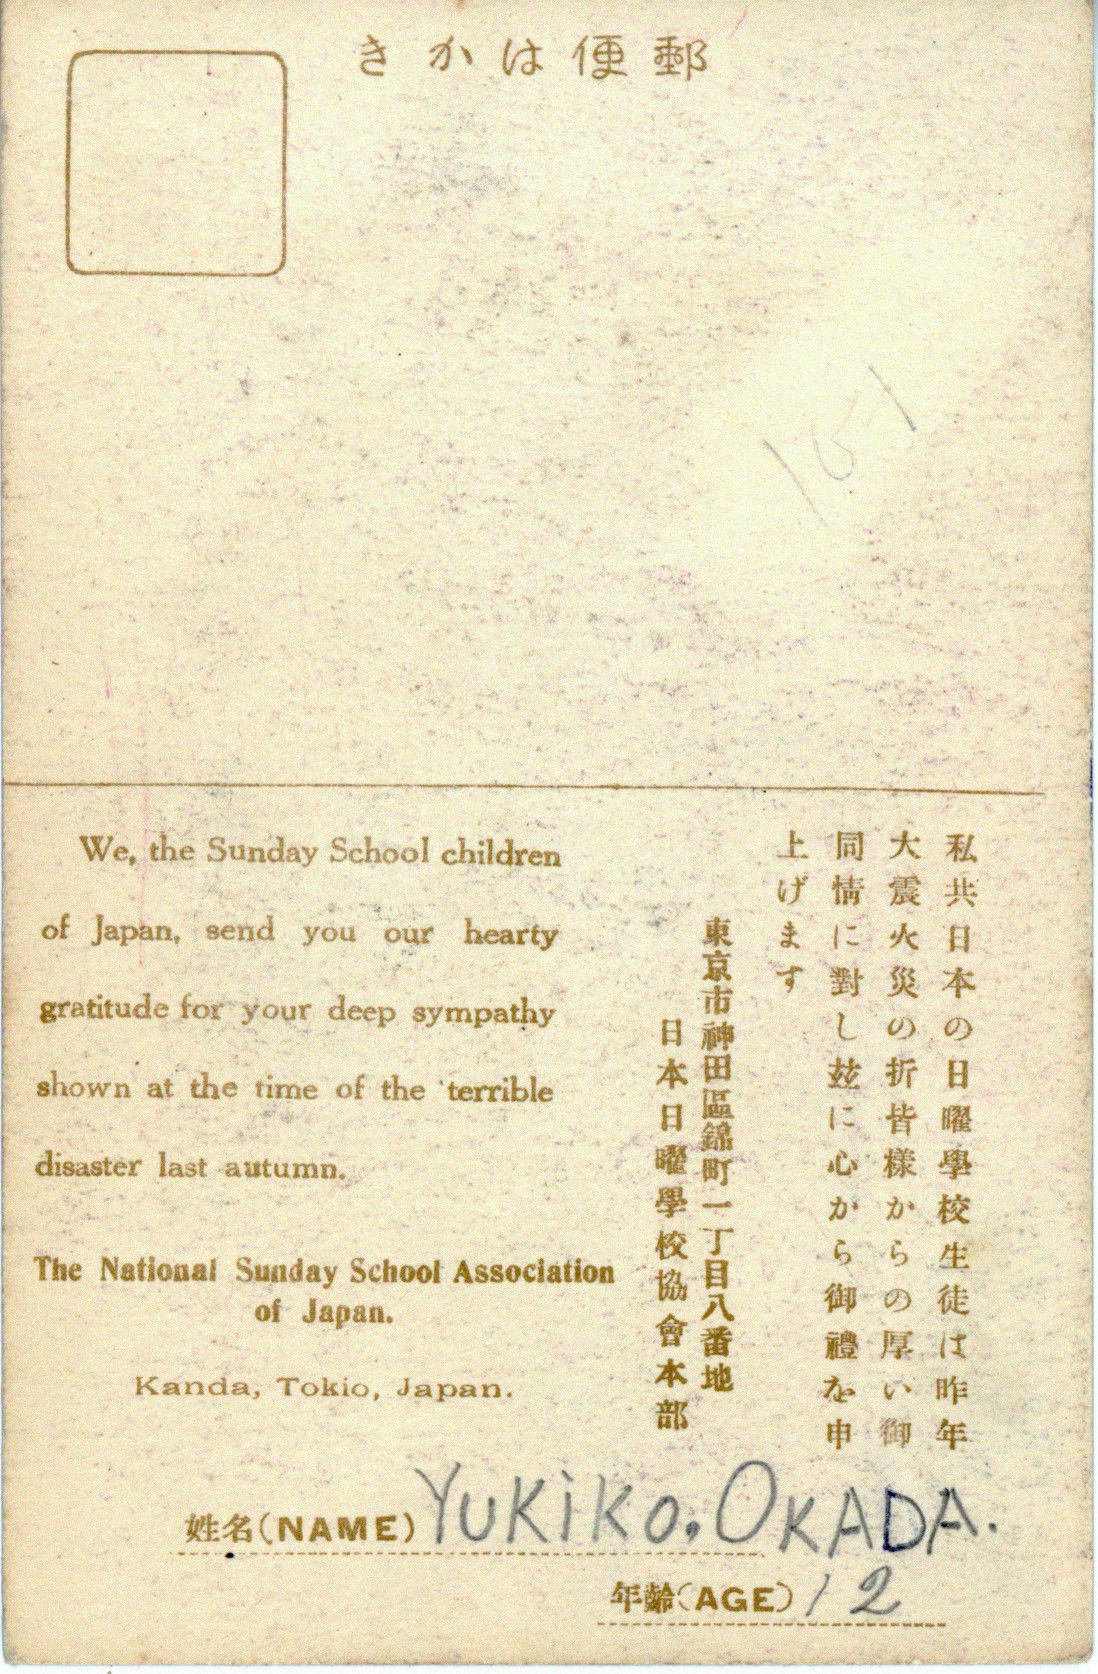 きかは便郵
We, the Sunday School children
of Japan, send you our hearty
gratitude for your deep sympathy
shown at the time of the terrible
disaster last autumn.
The National Sunday School Association
of Japan.
Kanda, Tokio, Japan.
私共日本の日曜學校生徒は昨年
大震火災の折皆樣からの厚い御
同情に對し玆に心から御禮を申
上げます
東京市神田區錦町一丁目八番地
日本日曜學校協會本部
姓名(NAME) YUKiKo. OKADA.
年齡(AGE) 12